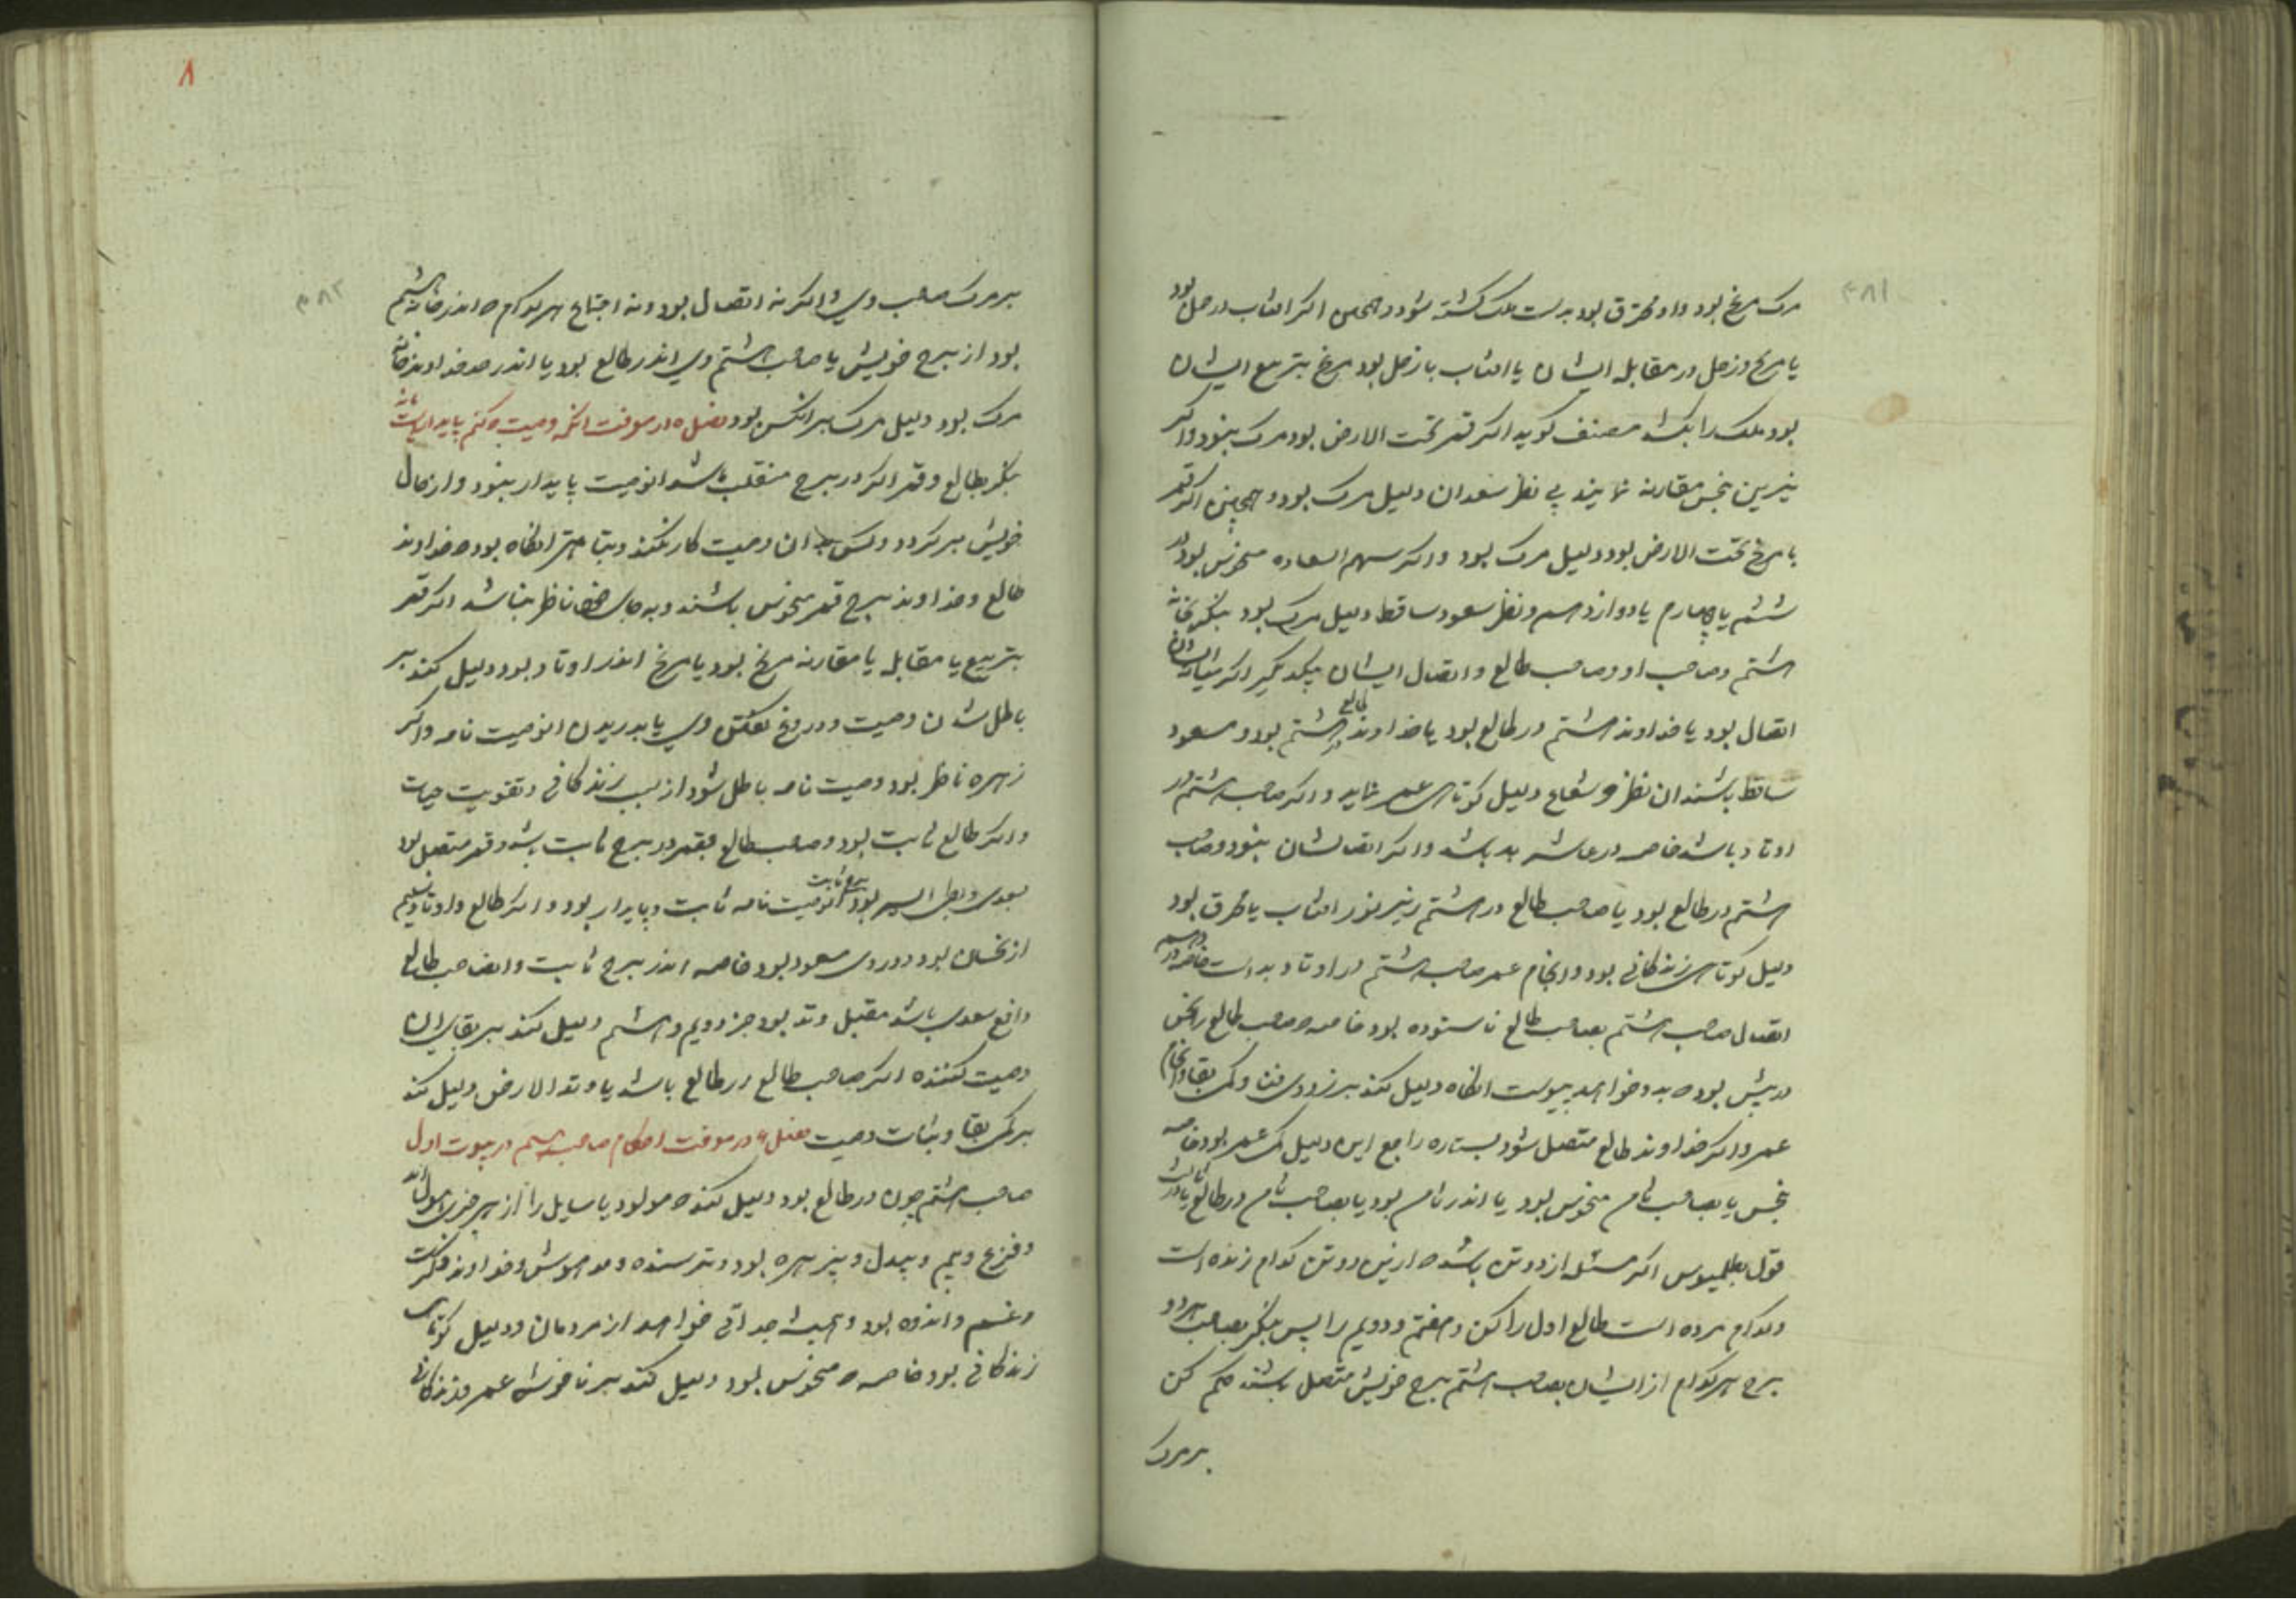 ۳۸۱
مرک مریخ بود و او محترق بود بدست ملک کشته شود و همچنین اکر افتاب در حمل بود
یا مریخ و زحل در مقابله ایشان یا افتاب با زحل بود مریخ بتربیع ایشان
بود ملک را بکشد مصنف کوید اکر قمر تحت الارض بود مرک بنود و اکر
نیرین بنحس مقارنه نمایند بی نظر سعدان دلیل مرک بود و همچنین اکر قمر
با مریخ تحت الارض بود دلیل مرک بود و اکر سهم السعاده منحوس بود در
ششم یا چهارم یا دوازدهم و نظر سعود ساقط دلیل مرک بود بنکر بخانه
هشتم و صاحب او و صاحب طالع و اتصال ایشان بیکدیکر اکر میان ایشان
اتصال بود یا خداوند هشتم در طالع بود یا خداوند طالع در هشتم بود و سعود
ساقط باشند از نظر و شعاع دلیل کوتاهی عمر نماید و اکر صاحب هشتم در
اوتاد باشد خاصه در عاشر بد باشد و اکر اتصالشان بنود و صاحب
هشتم در طالع بود یا صاحب طالع در هشتم زیر نور افتاب یا محترق بود
دلیل کوتاهی زندکانی بود و انجام عمر صاحب هشتم در اوتاد بد است خاصه در دهم
اتصال صاحب هشتم بصاحب طالع ناستوده بود خاصه صاحب طالع را نحس
در پیش بود که بدو خواهد پیوست انکاه دلیل کند بر زودی فنا و کمی بقا و انجام
عمر و اکر خداوند طالع متصل شود بستاره راجع این دلیل کمی عمر بود خاصه
بنحس یا بصاحب ثامن منحوس بود یا اندر ثامن بود یا بصاحب ثامن در طالع یا در ثالث
قول بطلمیوس اکر مسئله از دو تن باشد که ازین دو تن کدام زنده است
و کدام مرده است طالع اول را کن و هفتم و دویم را پس بنکر بصاحب هر دو
برج هر کدام از ایشان بصاحب هشتم برج خویش متصل باشند حکم کن
بر مرک
۸
۳۸۲
بر مرک صاحب وی و اکر نه اتصال بود و نه اجتماع هر کدام که اندر خانه هشتم
بود از برج خویش یا صاحب هشتم وی اندر طالع بود یا اندر حد خداوند خانه
مرک بود دلیل مرک بر انکس بود فصل ۵ در معرفت انکه وصیت که کنم پایدار است یا نه
بنکر بطالع و قمر اکر در برج منقلب باشد انوصیت پایدار بنود و از حال
خویش برکردد و کس بدان وصیت کار نکند و بتباهتر انکاه بود که خداوند
طالع و خداوند برج قمر منحوس باشند و به جای خود ناظر نباشد اکر قمر
بتربیع یا مقابله یا مقارنه مریخ بود یا مریخ اندر اوتاد بود دلیل کند بر
باطل شدن وصیت و دروغ کفتن وی یا بدریدن انوصیت نامه و اکر
زهره ناظر بود وصیت نامه باطل شود از سبب زندکانی و تقویت حیات
و اکر طالع ثابت بود و صاحب طالع و قمر در برج ثابت باشد و قمر متصل بود
بسعدی و بطی السیر بود برج ثابت انوصیت نامه ثابت و پایدار بود و اکر طالع و اوتاد سلیم
از نحسان بود و در وی سعود بود خاصه اندر برج ثابت و ایضا صاحب طالع
دافع سعدی باشد مقبل وتد بود جز دویم و هشتم دلیل کند بر بقای ان
وصیت کننده اکر صاحب طالع در طالع باشد یا وتد الارض دلیل کند
بر کمی بقا و ثبات وصیت فصل ۶ در معرفت احکام صاحب هشتم در بیوت اول
صاحب هشتم چون در طالع بود دلیل کند که مولود یا سایل را از هر چیزی هول
و فزع و بیم و بیدل و بیزهره بود و ترسنده و مدهوش و خداوند فکرت
و غم و اندوه بود و همیشه جدائی خواهد از مردمان و دلیل کوتاهی
زندکانی بود خاصه که منحوس بود دلیل کند بر ناخوشی عمر و زندکانی